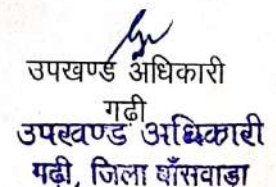 उपखण्ड अधिकारी
गढ़ी
उपखण्ड अधिकारी
गढ़ी, जिला बाँसवाडा